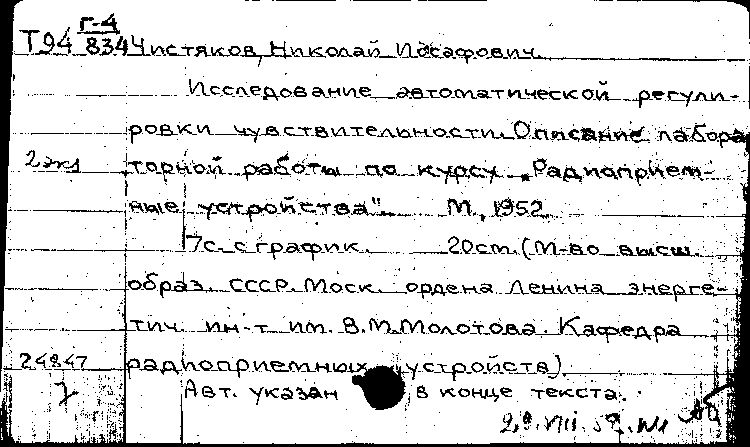 Г-4
Т94 8344 Чистяков, Николай Иосафович.
Исследование автоматической регули-
ровки чувствительности. Описание лабора
2 экз торной работы по курсу „Радиоприем-
ные устройства". М., 1952.
7с. с график. 20см. (М-во высш.
образ. СССР. Моск. ордена Ленина энерге-
тич. ин-т им. В.М.Молотова. Кафедра
24847 радиоприемных устройств).
Авт. указан в конце текста.